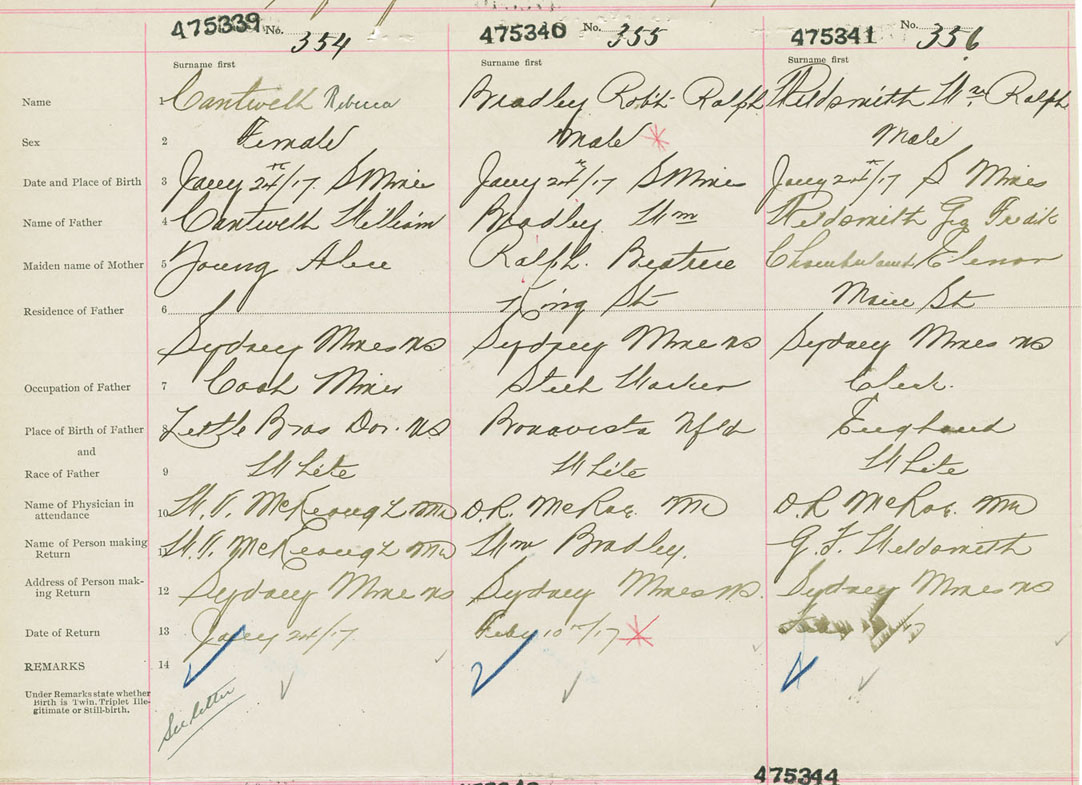 475339 No. 354 475340 No. 355 475341 No. 356
Surname first Surname first Surname first
Name 1 Cantwell Rebecca Bradley Robt. Ralph Weldsmith Wm Ralph
Sex 2 Female Male Male
Date and Place of Birth 3 Jany 24/17 S Mines Jany 24/17 S Mines Jany 24/17 S Mines
Name of Father 4 Cantwell William Bradley Wm Weldsmith Geo Fredk
Maiden name of Mother 5 Young Alice Ralph Beatrice Chamberland Elenor
Residence of Father 6 King St Main St
Sydney Mines NS Sydney Mines NS Sydney Mines NS
Occupation of Father 7 Coal Miner Steel Worker Clerk.
Place of Birth of Father 8 Little Bras Dor. NS Bonavista Nfld England
and
Race of Father 9 White White White
Name of Physician in
attendance 10 W. V. McKeough MD D.R. McRae. MD D.R McRae. MD
Name of Person making
Return 11 W. V. McKeough MD Wm Bradley. G. F. Weldsmith
Address of Person mak-
ing Return 12 Sydney Mines NS Sydney Mines NS. Sydney Mines NS
Date of Return 13 Jany 24/17. Feby 10th/17
REMARKS 14
Under Remarks state whether
Birth is Twin. Triplet Ille-
gitimate or Still-birth.
See letter
475344